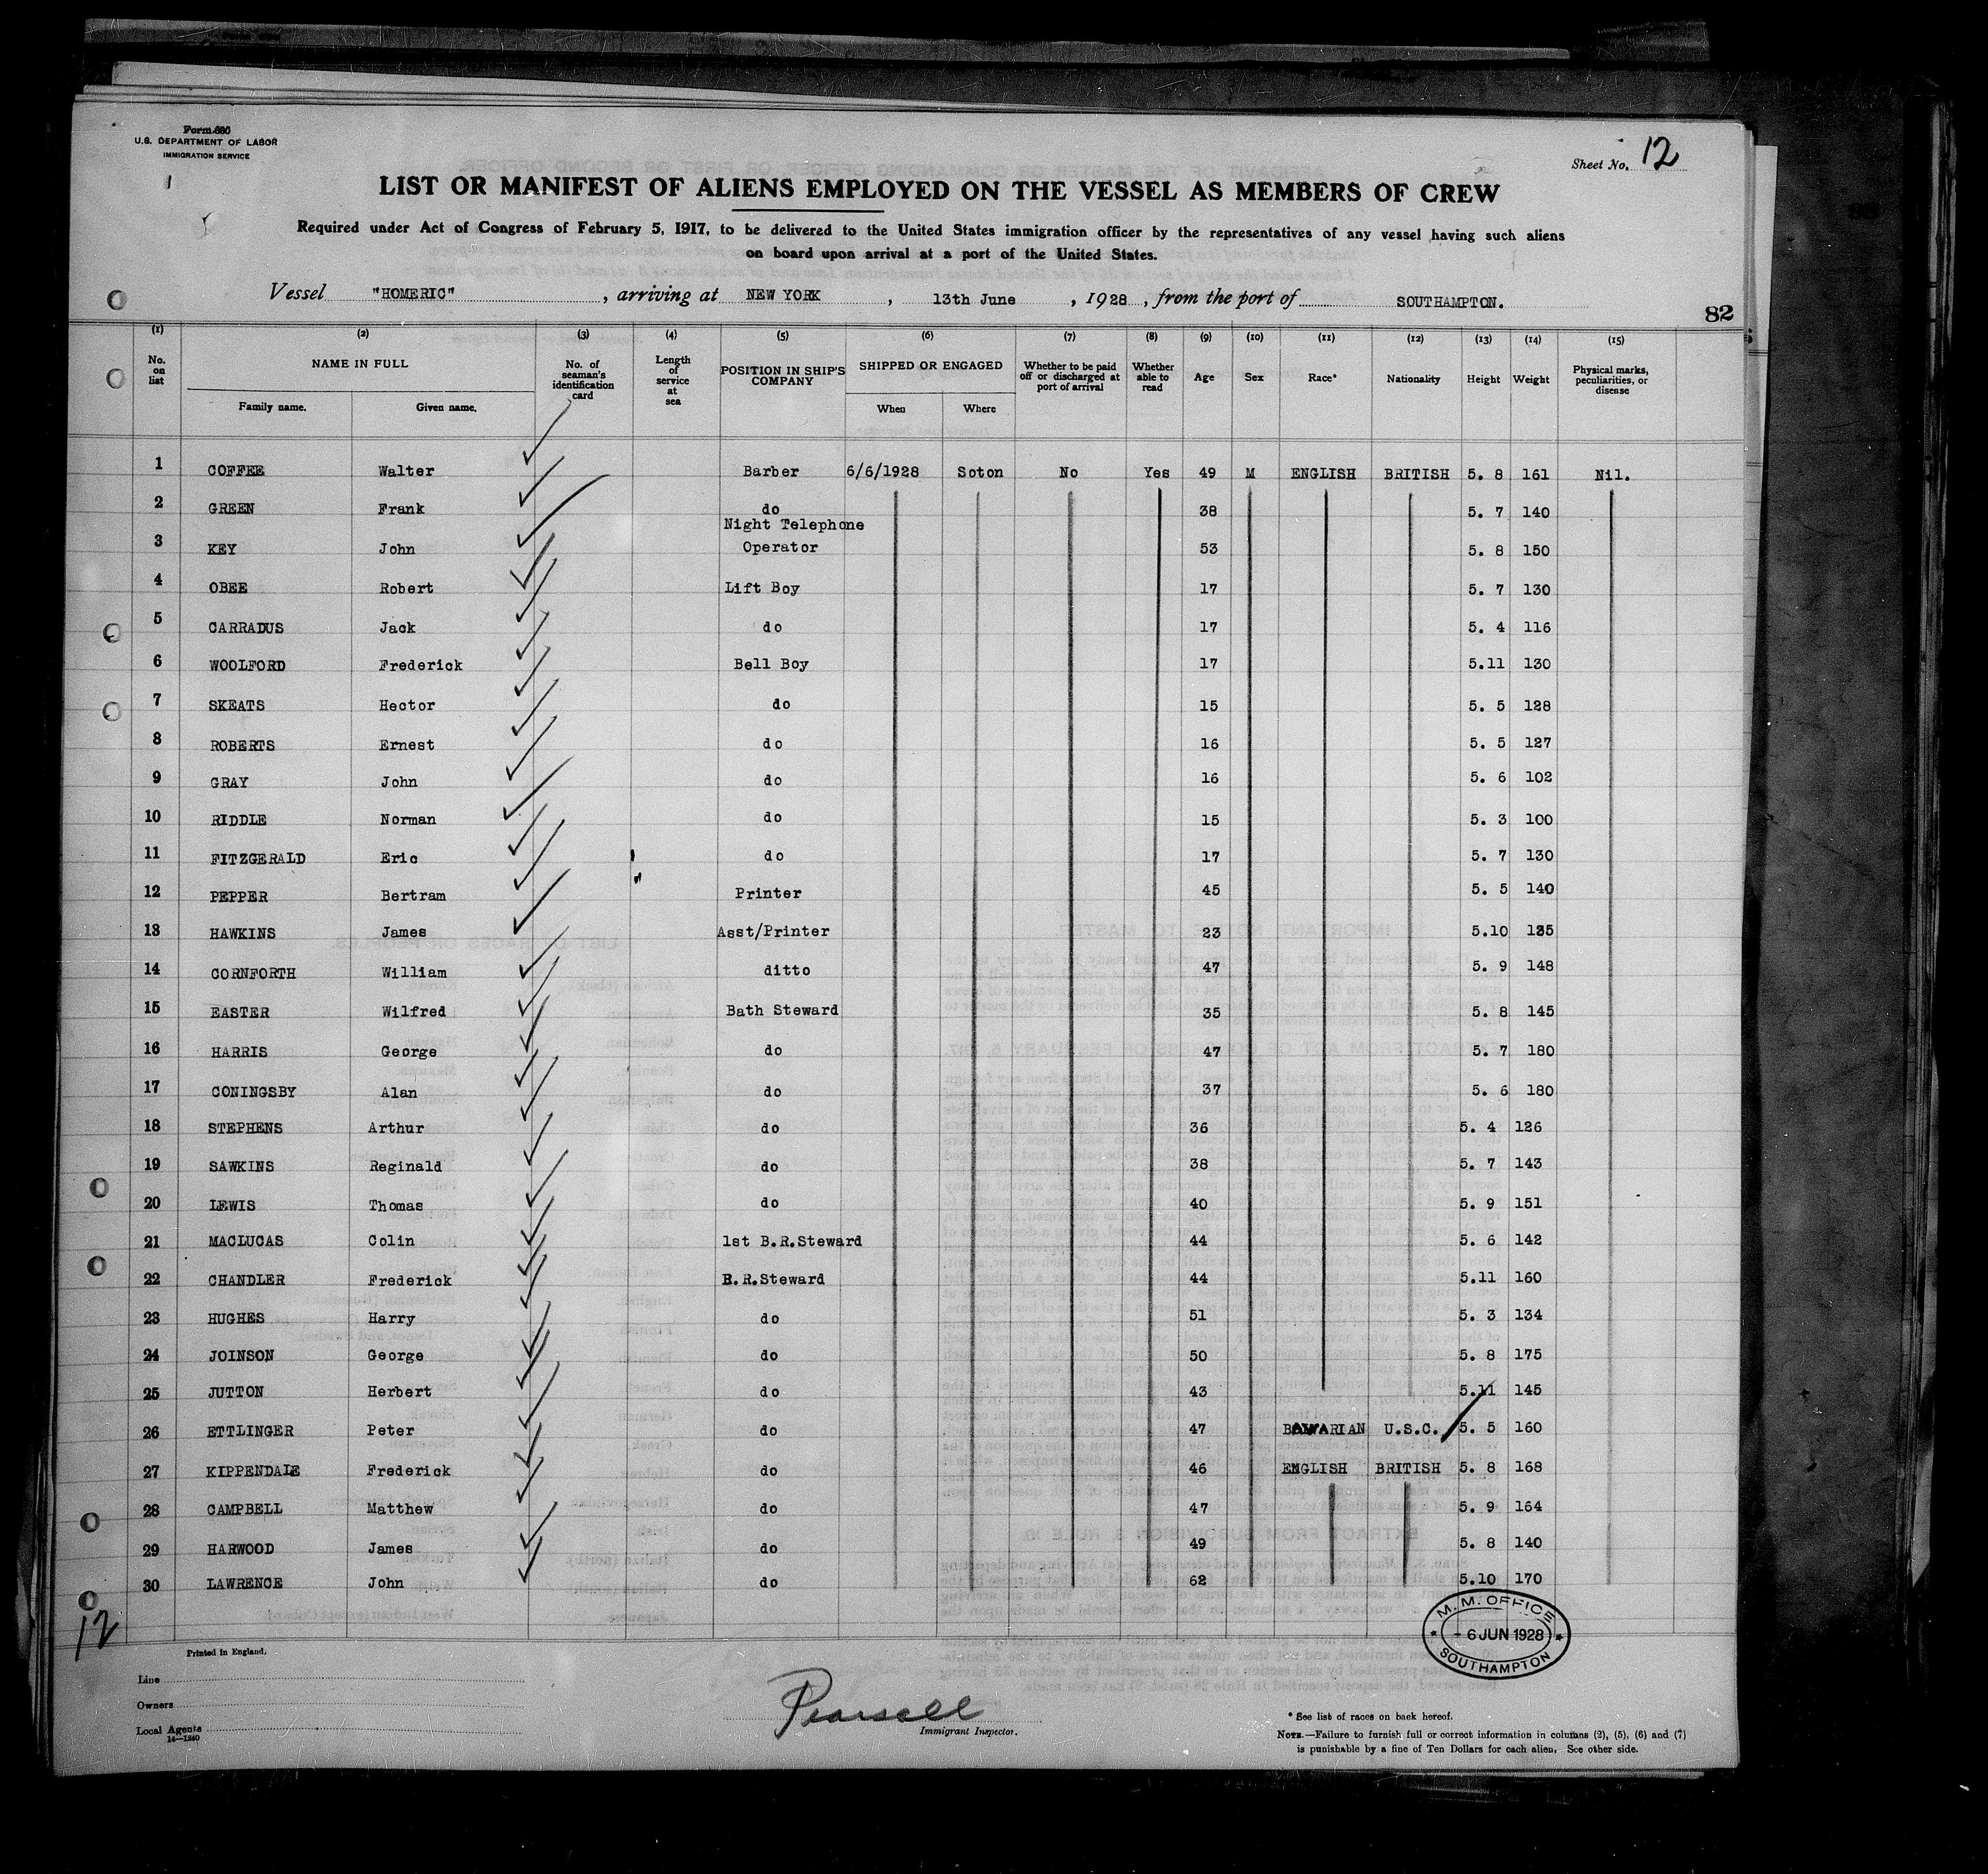 Form 680
U.S. DEPARTMENT OF LABOR
IMMIGRATION SERVICE
Sheet No. 12
LIST OR MANIFEST OF ALIENS EMPLOYED ON THE VESSEL AS MEMBERS OF CREW
Required under Act of Congress of February 5, 1917, to be delivered to the United States immigration officer by the representatives of any vessel having such aliens
on board upon arrival at a port of the United States.
Vessel "HOMERIC", arriving at NEW YORK, 13th June, 1928, from the port of SOUTHAMPTON.
82
(1) (2) (3) (4) (5) (6) (7) (8) (9) (10) (11) (12) (13) (14) (15)
No. on list NAME IN FULL Family name. Given name. No. of seaman's identification card Length of service at sea POSITION IN SHIP'S COMPANY SHIPPED OR ENGAGED When Where Whether to be paid off or discharged at port of arrival Whether able to read Age Sex Race* Nationality Height Weight Physical marks, peculiarities, or disease
1 COFFEE Walter Barber 6/6/1928 Soton No Yes 49 M ENGLISH BRITISH 5. 8 161 Nil.
2 GREEN Frank do 38 5. 7 140
3 KEY John Night Telephone Operator 53 5. 8 150
4 OBEE Robert Lift Boy 17 5. 7 130
5 CARRADUS Jack do 17 5. 4 116
6 WOOLFORD Frederick Bell Boy 17 5.11 130
7 SKEATS Hector do 15 5. 5 128
8 ROBERTS Ernest do 16 5. 5 127
9 GRAY John do 16 5. 6 102
10 RIDDLE Norman do 15 5. 3 100
11 FITZGERALD Eric do 17 5. 7 130
12 PEPPER Bertram Printer 45 5. 5 140
13 HAWKINS James Asst/Printer 23 5.10 135
14 CORNFORTH William ditto 47 5. 9 148
15 EASTER Wilfred Bath Steward 35 5. 8 145
16 HARRIS George do 47 5. 7 180
17 CONINGSBY Alan do 37 5. 6 180
18 STEPHENS Arthur do 36 5. 4 126
19 SAWKINS Reginald do 38 5. 7 143
20 LEWIS Thomas do 40 5. 9 151
21 MACLUCAS Colin 1st B.R.Steward 44 5. 6 142
22 CHANDLER Frederick B.R.Steward 44 5.11 160
23 HUGHES Harry do 51 5. 3 134
24 JOINSON George do 50 5. 8 175
25 JUTTON Herbert do 43 5.11 145
26 ETTLINGER Peter do 47 BAVARIAN U.S.C. 5. 5 160
27 KIPPENDALE Frederick do 46 ENGLISH BRITISH 5. 8 168
28 CAMPBELL Matthew do 47 5. 9 164
29 HARWOOD James do 49 5. 8 140
30 LAWRENCE John do 62 5.10 170
12
M. M. OFFICE
6 JUN 1928
SOUTHAMPTON
Printed in England.
Line
Owners
Local Agents
14—1240
Pearsall
Immigrant Inspector.
* See list of races on back hereof.
NOTE.—Failure to furnish full or correct information in columns (2), (5), (6) and (7)
is punishable by a fine of Ten Dollars for each alien. See other side.